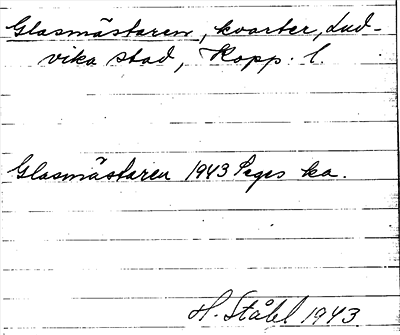 Glasmästaren, kvarter, Lud-
vika stad, Kopp. l.
Glasmästaren 1943 Seges ka.
H. Ståhl 1943